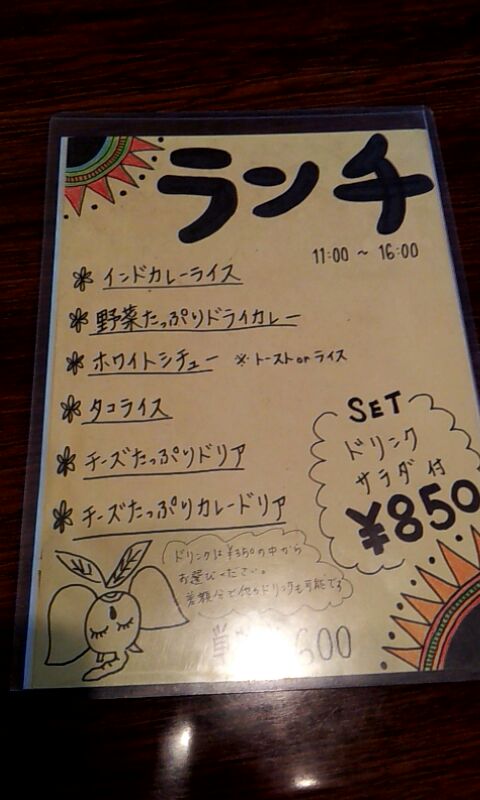 ランチ
11:00 ~ 16:00
インドカレーライス
野菜たっぷりドライカレー
ホワイトシチュー ※トーストorライス
タコライス
チーズたっぷりドリア
チーズたっぷりカレードリア
SET
ドリンク
サラダ付
¥850
ドリンクは¥350の中から
お選びください。
差額分で他のドリンクも可能です
600